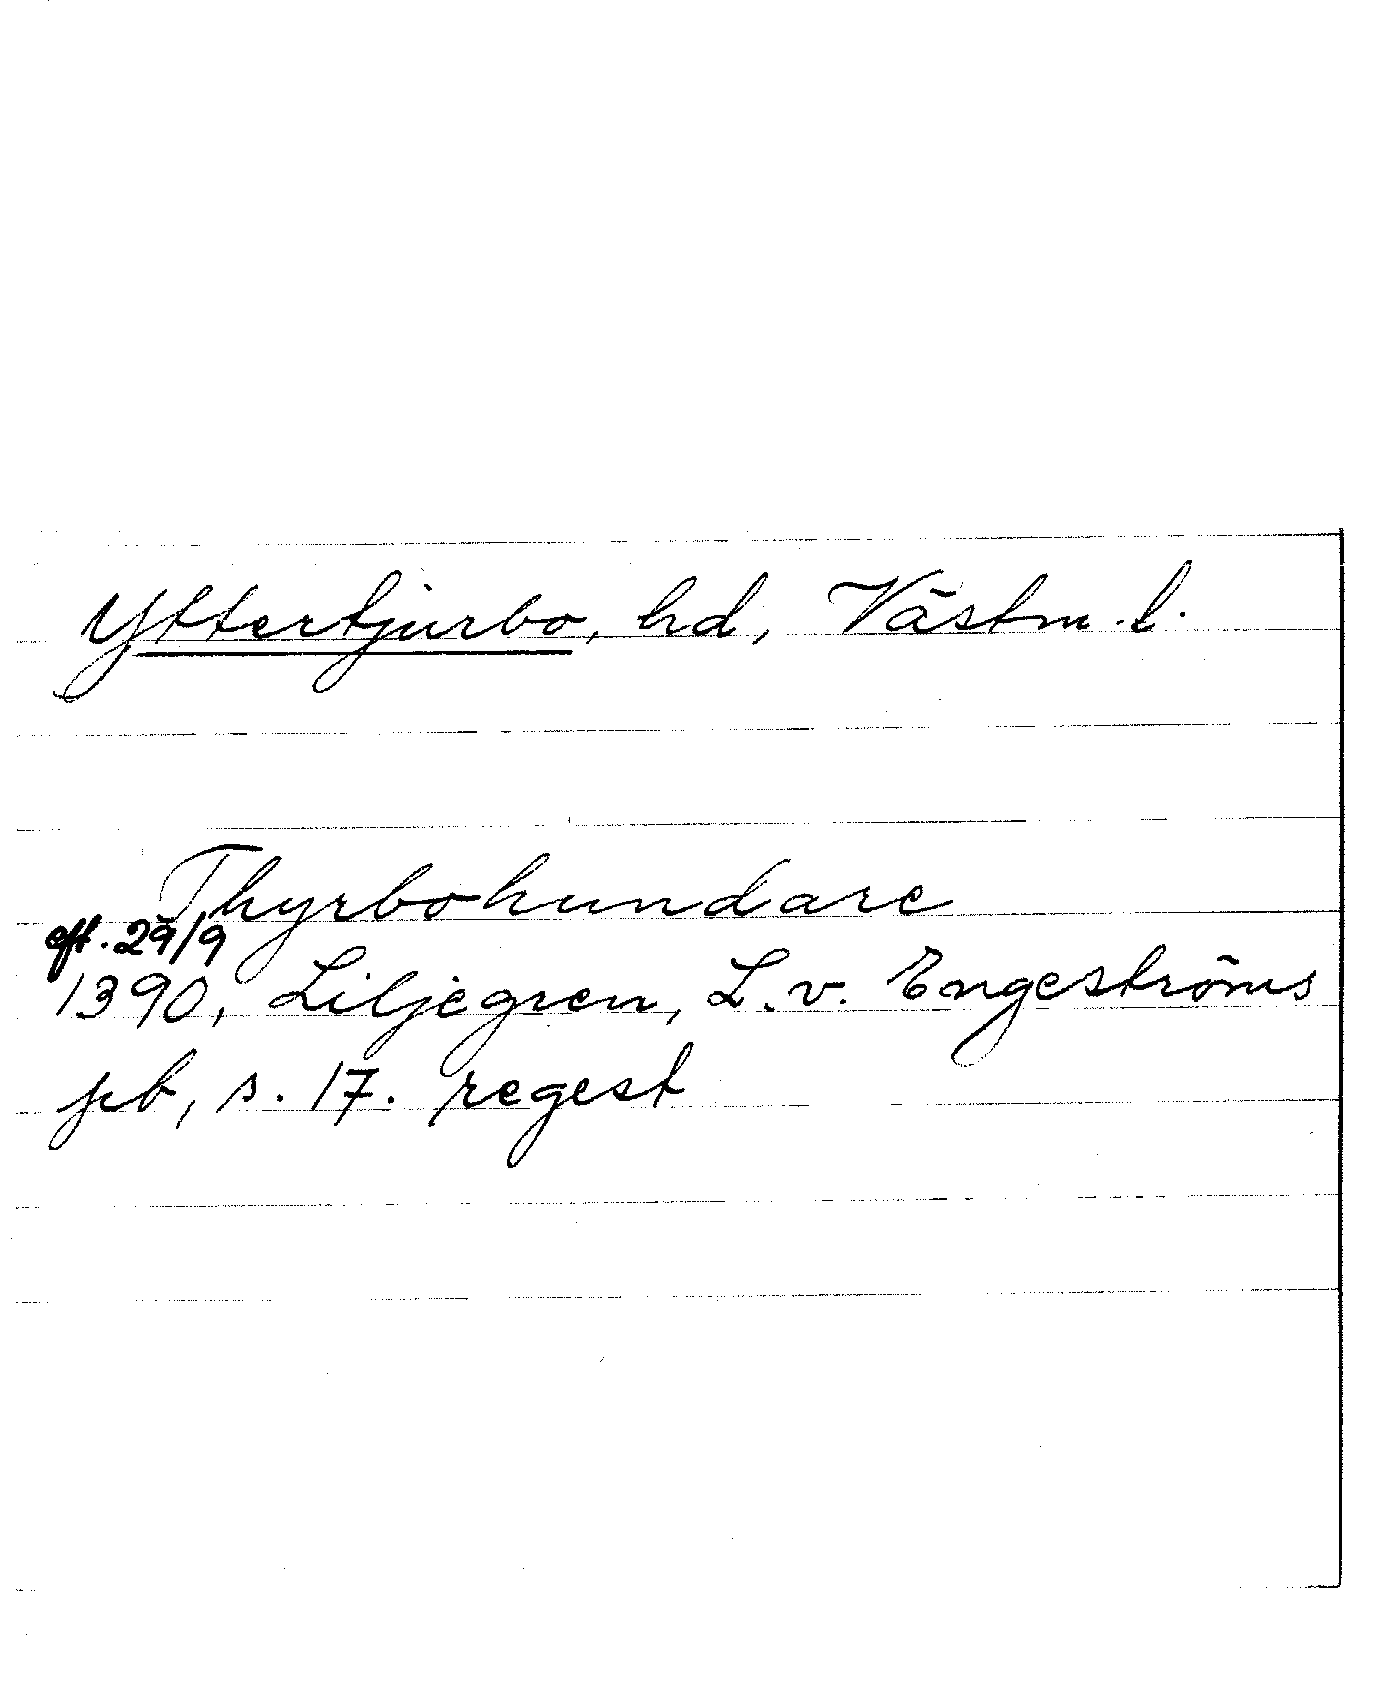 Yttertjurbo, hd, Västm. l.
Thyrbohundare
eft. 29/9
1390, Liljegren, L. v. Engeströms
pb, s. 17. regest